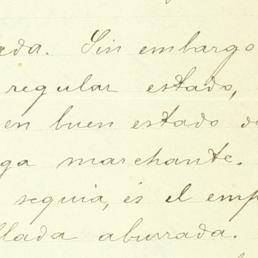 ada. Sin embargo
regular estado,
en buen estado de
ga marchante.
seguia, és el emp
llada aburrada.